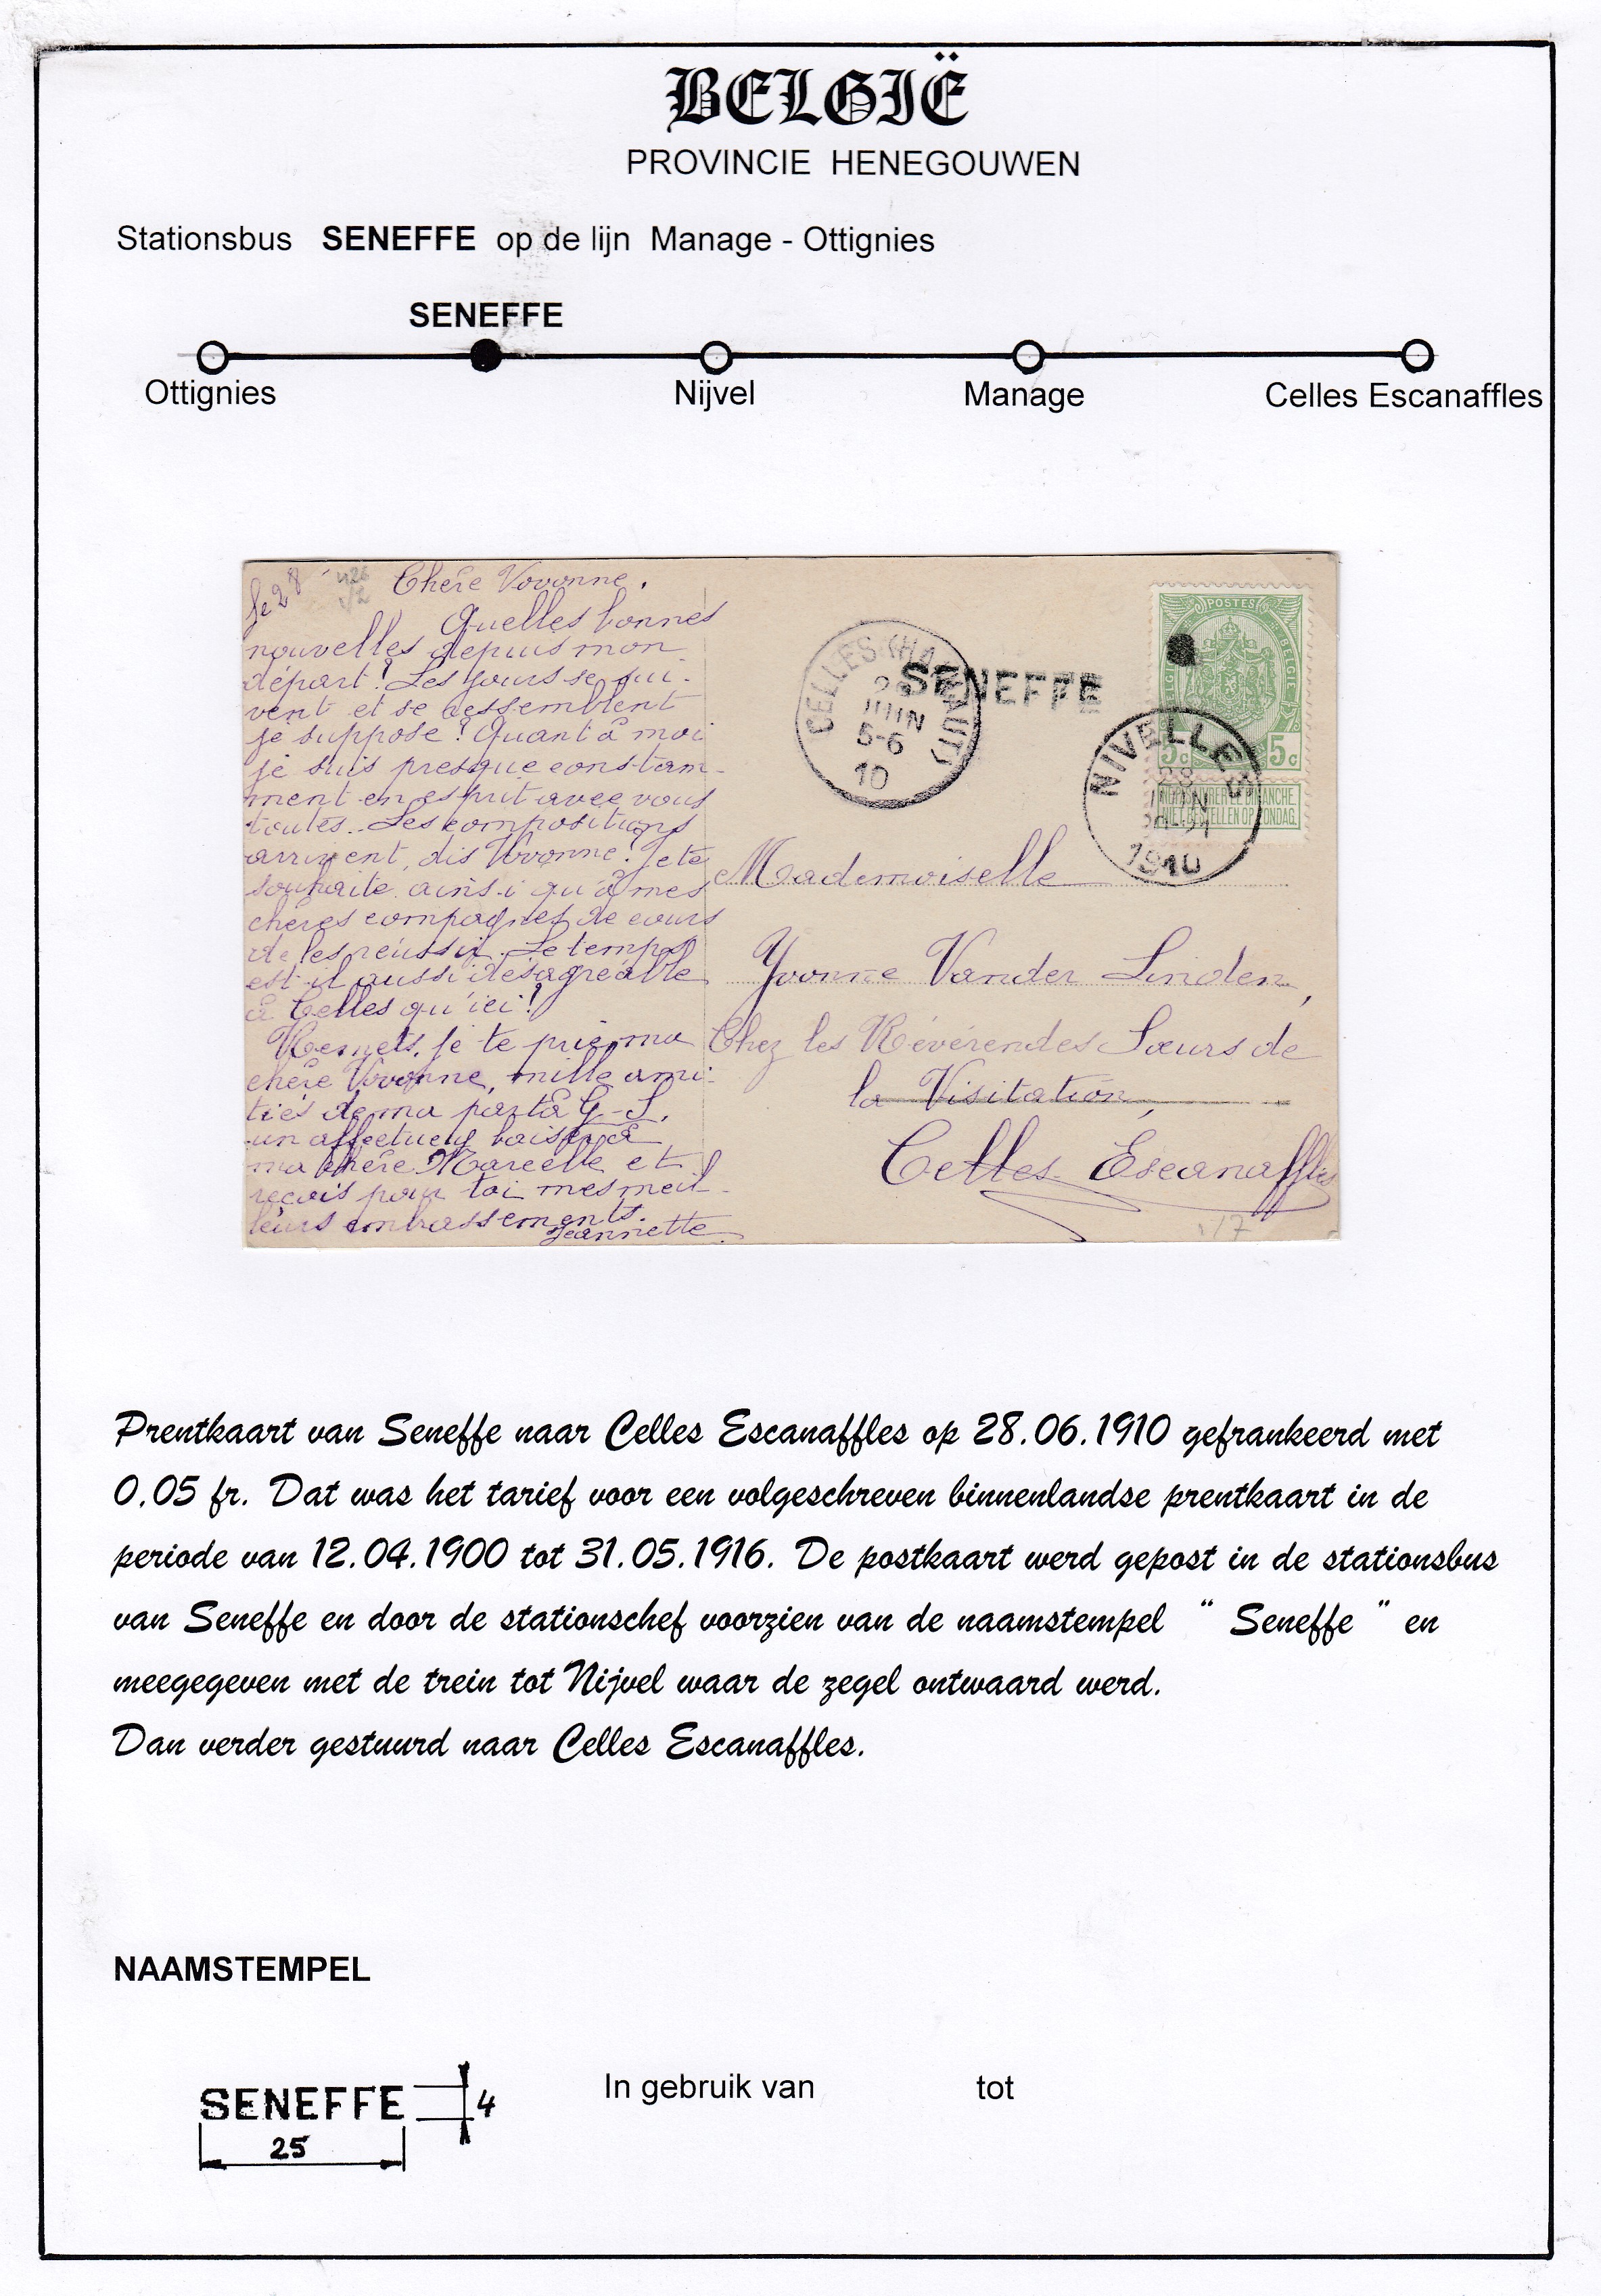 BELGIË
PROVINCIE HENEGOUWEN
Stationsbus SENEFFE op de lijn Manage - Ottignies
SENEFFE
Ottignies Nijvel Manage Celles Escanaffles
le 28
Chère Yvonne,
Quelles bonnes
nouvelles depuis mon
départ? Les jours se sui-
vent et se ressemblent
je suppose! Quant à moi
je suis presque constam-
ment en esprit avec vous
toutes. Les compositions
arrivent, dis Yvonne! Je te
souhaite ainsi qu'à mes
chères compagnes de cours
de les réussir. Le temps
est-il aussi désagréable
à Celles qu'ici?
Remets, je te prie, ma
chère Yvonne, mille ami-
tiés de ma part à G-S,
un affectueux baiser à
ma chère Marcelle et
reçois pour toi mes meil-
leurs embrassements.
Jeannette
CELLES (HAINAUT)
28
JUIN
5-6
10
SENEFFE
POSTES
BELGIE
5c 5c
NE PAS LIVRER LE DIMANCHE
NIET BESTELLEN OP ZONDAG
NIVELLES
28
JUIN
1910
Mademoiselle
Yvonne Vander Linden,
Chez les Révérendes Sœurs de
la Visitation,
Celles Escanaffles
Prentkaart van Seneffe naar Celles Escanaffles op 28.06.1910 gefrankeerd met
0,05 fr. Dat was het tarief voor een volgeschreven binnenlandse prentkaart in de
periode van 12.04.1900 tot 31.05.1916. De postkaart werd gepost in de stationsbus
van Seneffe en door de stationschef voorzien van de naamstempel “ Seneffe ” en
meegegeven met de trein tot Nijvel waar de zegel ontwaard werd.
Dan verder gestuurd naar Celles Escanaffles.
NAAMSTEMPEL
SENEFFE 4
25
In gebruik van tot